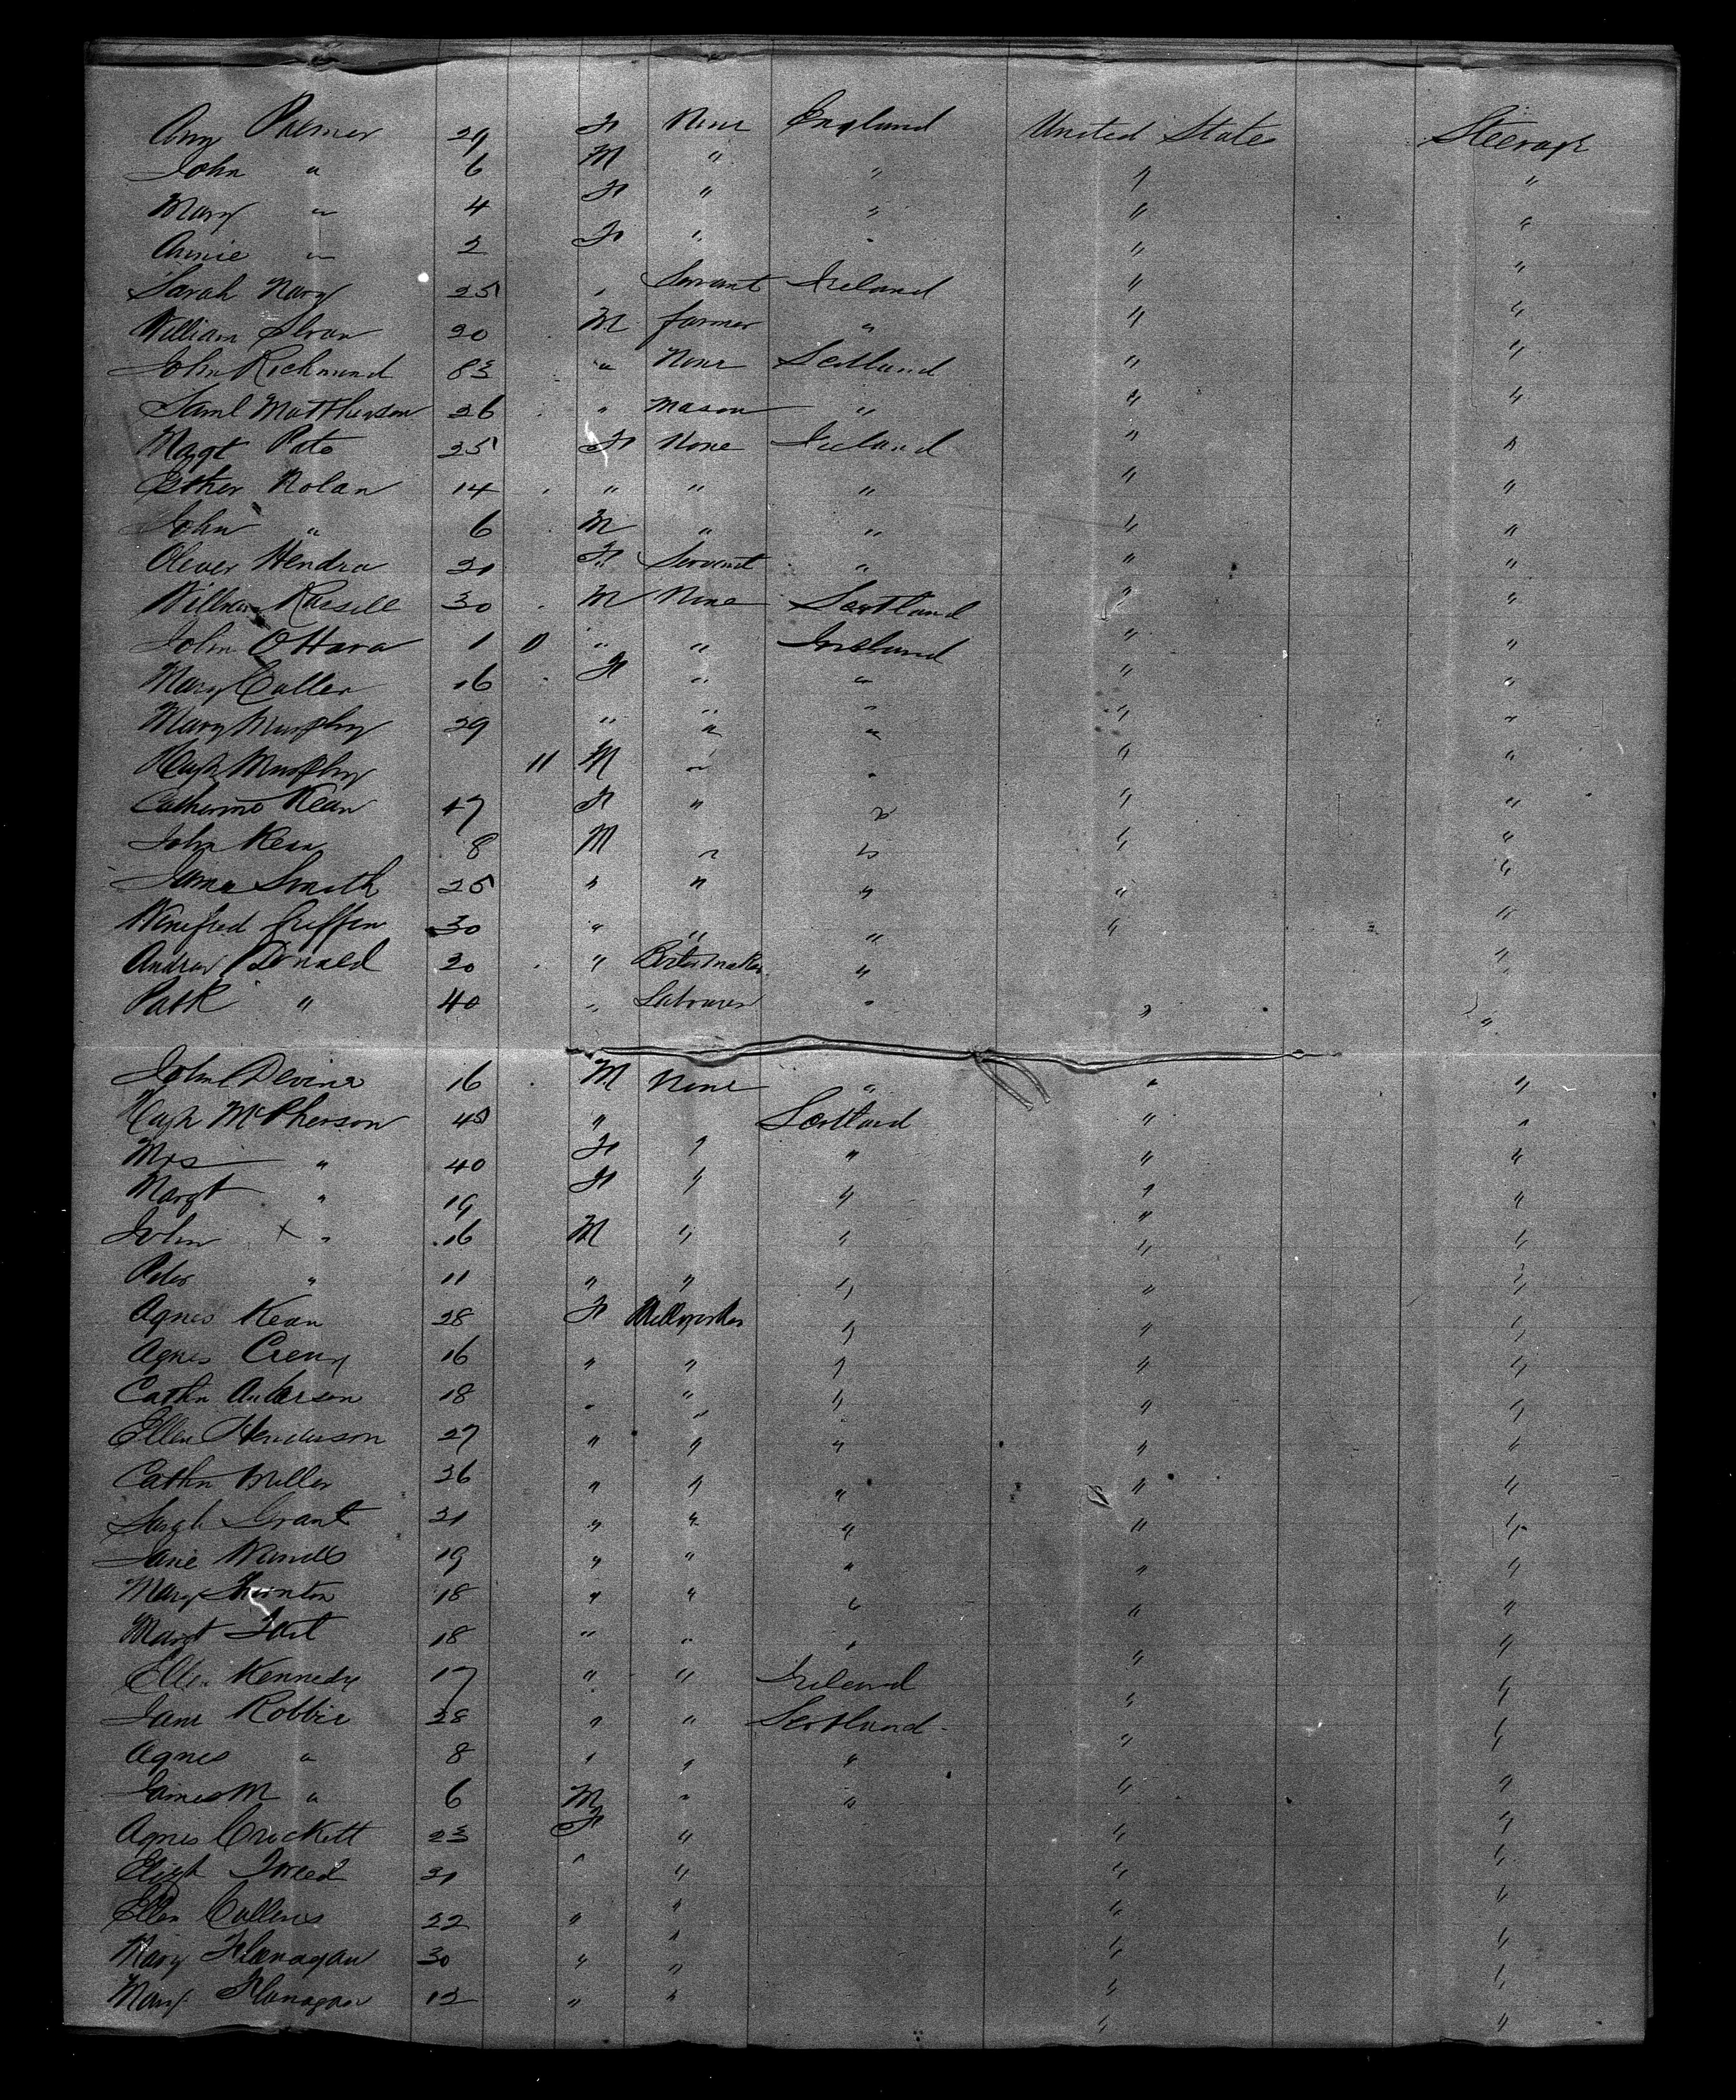 Amy Palmer 29 F None England United States Steerage
John " 6 M " " " "
Mary " 4 F " " " "
Annie " 2 F " " " "
Sarah Nary 25 " Servant Ireland " "
William Sloan 20 M farmer " " "
John Richmond 83 " None Scotland " "
Saml Mattherson 26 " Mason " " "
Margt Pate 25 F None Ireland " "
Esther Nolan 14 " " " " "
John " 6 M " " " "
Oliver Hendra 21 F Servant " " "
William Russell 30 M None Scotland " "
John O'Hara 1 11 " " Ireland " "
Mary Culler 16 F " " " "
Mary Murphy 29 " " " " "
Hugh Murphy 11 M " " " "
Catherine Kean 47 F " " " "
John Kean 8 M " " " "
James Smith 25 " " " " "
Winifred Griffin 30 " " " " "
Andrew Donald 20 " " " "
Patk " 40 " Labourer " " "
John Devine 16 M None " " "
Hugh McPherson 45 " Scotland " "
Mrs " 40 F " " " "
Margt " 19 F " " " "
John X " 16 M " " " "
Peter " 11 " " " " "
Agnes Kean 28 F Millworker " " "
Agnes 16 " " " " "
Cathn Anderson 18 " " " " "
Ellen Henderson 27 " " " " "
Cathn Miller 26 " " " " "
Sarah Grant 21 " " " " "
Jane 19 " " " " "
Mary Thornton 18 " " " " "
Margt 18 " " " " "
Ellen Kennedy 17 " " Ireland " "
Jane Robbie 28 " " Scotland " "
Agnes " 8 " " " " "
James M " 6 M " " " "
Agnes Crockett 23 F " " "
Elizth Tweed 31 " " " "
Ellen Cullens 22 " " " "
Mary Flanagan 30 " " " "
Mary Flanagan 12 " " " "